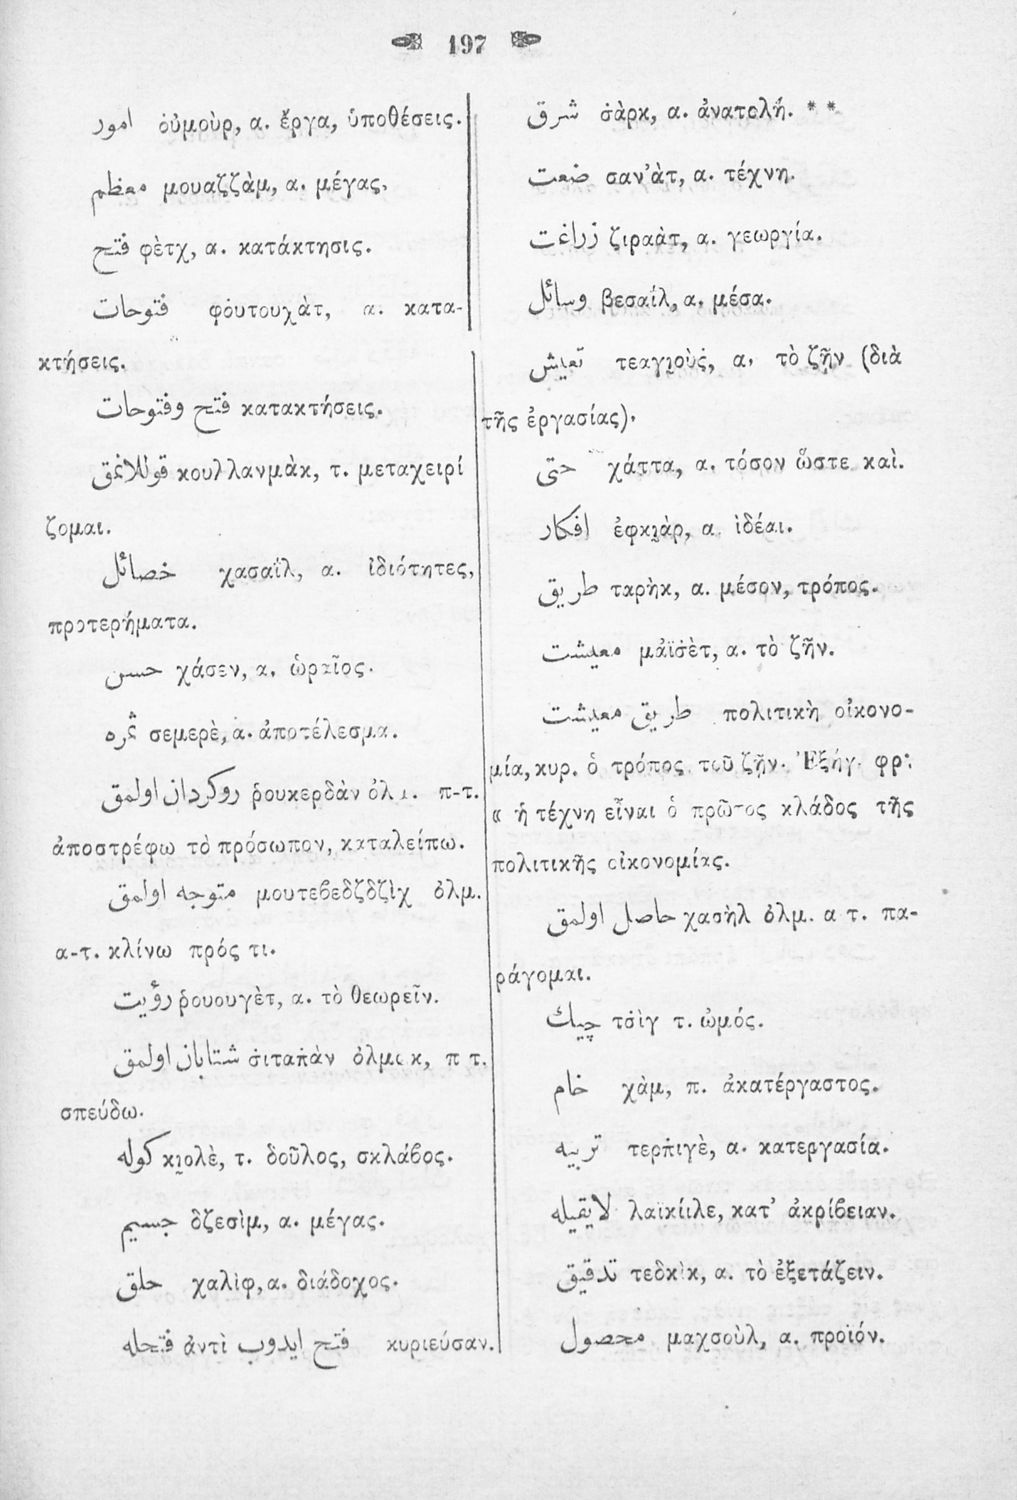 197
امور οὐμοὺρ, α. ἔργα, ὑποθέσεις.
معظم μουαζζὰμ, α. μέγας.
فتح φὲτχ, α. κατάκτησις.
فتوحات φȯυτουχὰτ, α. κατα-
κτήσεις.
فتح وفتوحات κατακτήσεις.
قوللانمق κουλλανμὰκ, τ. μεταχειρί
ζομαι.
خصائل χασαΐλ, α. ἰδιότητες,
προτερήματα.
حسن χάσεν, α. ὡραῖος.
ثمره σεμερὲ, α. ἀποτέλεσμα.
روكردان اولمق ῥουκερδὰν ὀλμ. π-τ.
ἀποστρέφω τὸ πρόσωπον, καταλείπω.
متوجه اولمق μουτεβεδζδζὶχ ὀλμ.
α-τ. κλίνω πρός τι.
رؤيت ῥουουγὲτ, α. τὸ θεωρεῖν.
شتابان اولمق σ̇ιταπ̇ὰν ὀλμακ, π τ.
σπεύδω.
كوله κιολὲ, τ. δοῦλος, σκλάβος.
جسيم δζεσὶμ, α. μέγας.
خلق χαλὶφ, α. διάδοχος.
فتحله ἀντὶ فتح ايدوب κυριεύσαν.
شرق σ̇ὰρκ, α. ἀνατολή. * *
ضعت σαν’ὰτ, α. τέχνη.
زراغت ζιραὰτ, α. γεωργία.
وسائل βεσαΐλ, α. μέσα.
تعيش τεαγιοὺς̇, α. τὸ ζῆν (διὰ
τῆς ἐργασίας).
حتى χάττα, α. τόσον ὥστε καὶ.
افكار ἐφκιὰρ, α. ἰδέαι.
طريق ταρὴκ, α. μέσον, τρόπος.
معيشت μἀϊσ̇ὲτ, α. τὸ ζῆν.
طريق معيشت πολιτικὴ οἰκονο-
μία, κυρ. ὁ τρόπος τοῦ ζῆν. Ἐξήγ. φρ:
« ἡ τέχνη εἶναι ὁ πρῶτος κλάδος τῆς
πολιτικῆς οἰκονομίας.
حاصل اولمق χασὴλ ὀλμ. α τ. πα-
ράγομαι.
چيك τσ̇ὶγ τ. ὠμός.
خام χὰμ, π. ἀκατέργαστος.
تربيه τερπ̇ιγὲ, α. κατεργασία.
لايقيله λαϊκίιλε, κατ’ ἀκρίβειαν.
تدقيق τεδκὶκ, α. τὸ ἐξετάζειν.
محصول μαχσοὺλ, α. προϊόν.